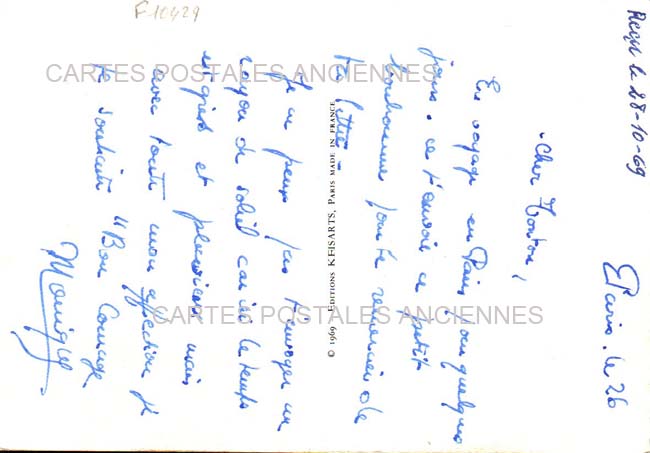 F-10429
Reçu le 28-10-69
Paris. le 26
Cher Tonton,
En voyage en Paris pour quelques
jours. je t'envoie ce petit
pour te remercier de
ta lettre -
Je ne peux pas t'envoyer un
rayon de soleil car ici le temps
est gris et pluvieux mais
avec toute mon affection je
te souhaite "Bon Courage.
Monique
© 1969 - EDITIONS KEISARTS, PARIS MADE IN FRANCE
CARTES POSTALES ANCIENNES
CARTES POSTALES ANCIENNES